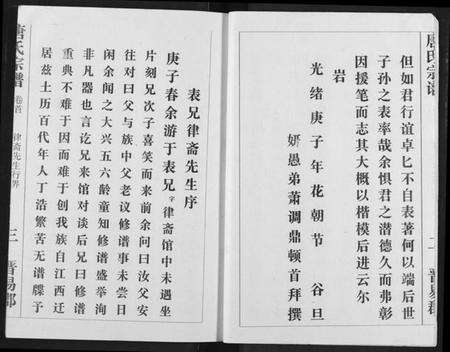 唐氏宗谱
二
晋昜郡
但如君行谊卓匕不自表著何以端后世
子孙之表率哉余惧君之潜德久而弗彰
因援笔而志其大概以楷模后进云尔
岩
光绪庚子年花朝节 谷旦
妍愚弟萧调鼎顿首拜撰
表兄律斋先生序
庚子春余游于表兄字律斋馆中未遇坐
片刻兄次子喜笑而来前余问曰汝父安
往对曰父与族中父老议修谱事未尝日
闲余闻之大兴五六龄童知修谱盛举洵
非凡器也言讫兄来馆对谈后兄曰修谱
重典不难于因而难于创我族自江西迁
居兹土历百代年人丁浩繁苦无谱牒予
唐氏宗谱
卷首
律斋先生行界
三
晋昜郡